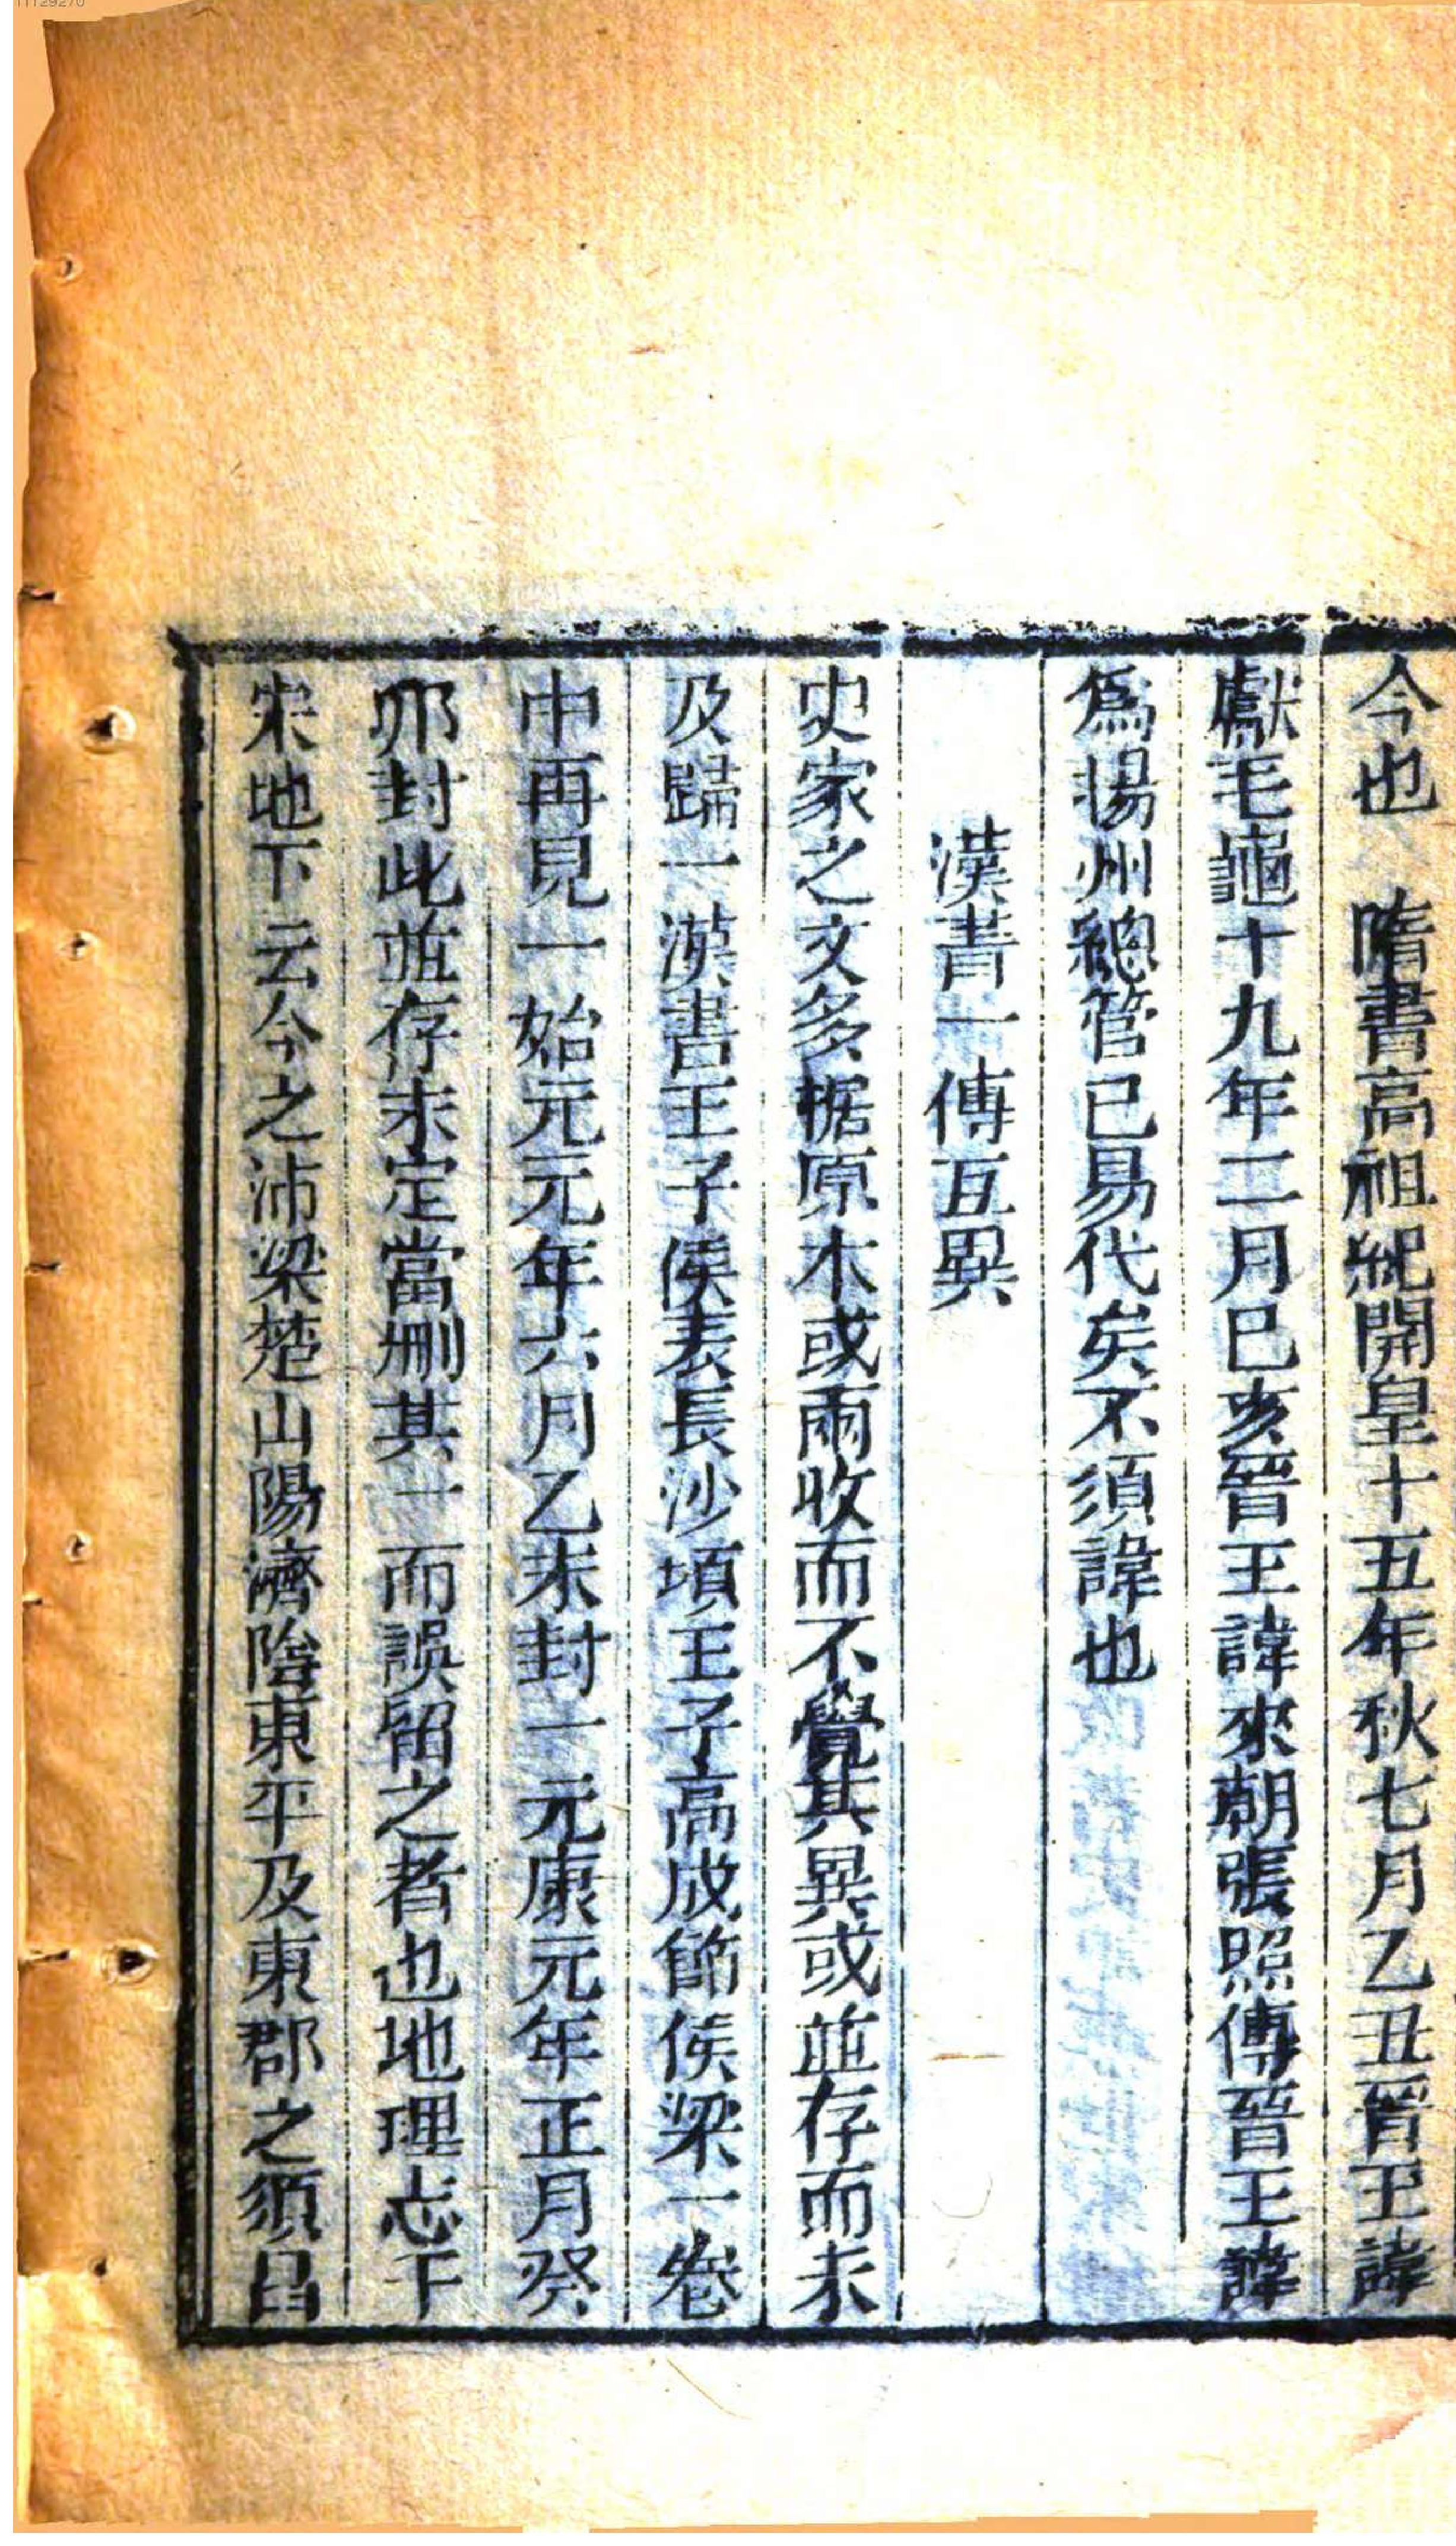 今也　隋書高祖紀開皇十五年秋七月乙丑晉王諱
獻毛龜十九年二月巳亥晉王諱來朝張照傳晉王諱
爲揚州總管已易代矣不須諱也
漢書一傳互異
史家之文多据原本或兩收而不覺其異或並存而未
及歸一漢書王子侯表長沙頃王子高成節侯梁一卷
中再見一始元元年六月乙未封一元康元年正月癸
卯封此並存未定當刪其一而誤留之者也地理志下
宋地下云今之沛梁楚山陽濟陰東平及東郡之須昌